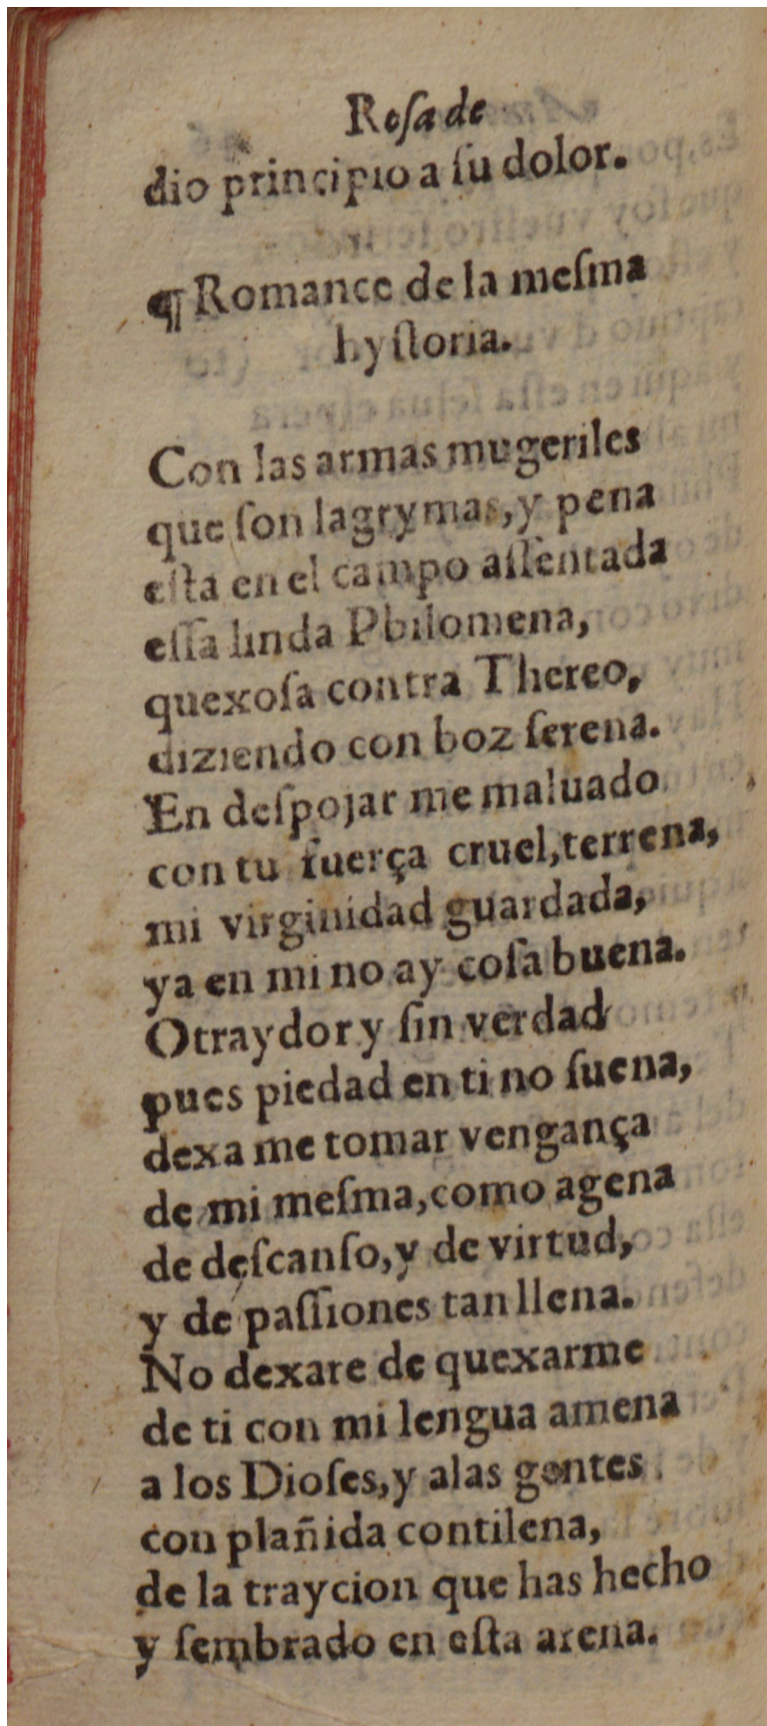 Rosa de
dio principio a ſu dolor.
¶ Romance de la meſma
hyſtoria.
Con las armas mugeriles
que ſon lagrymas, y pena
eſta en el campo aſſentada
eſſa linda Philomena,
quexoſa contra Thereo,
diziendo con boz ſerena.
En deſpojar me maluado
con tu fuerça cruel, terrena,
mi virginidad guardada,
ya en mi no ay coſa buena.
O traydor y ſin verdad
pues piedad en ti no ſuena,
dexa me tomar vengança
de mi meſma, como agena
de deſcanſo, y de virtud,
y de paſſiones tan llena.
No dexare de quexarme
de ti con mi lengua amena
a los Dioſes, y alas gentes
con plañida contilena,
de la traycion que has hecho
y ſembrado en eſta arena.